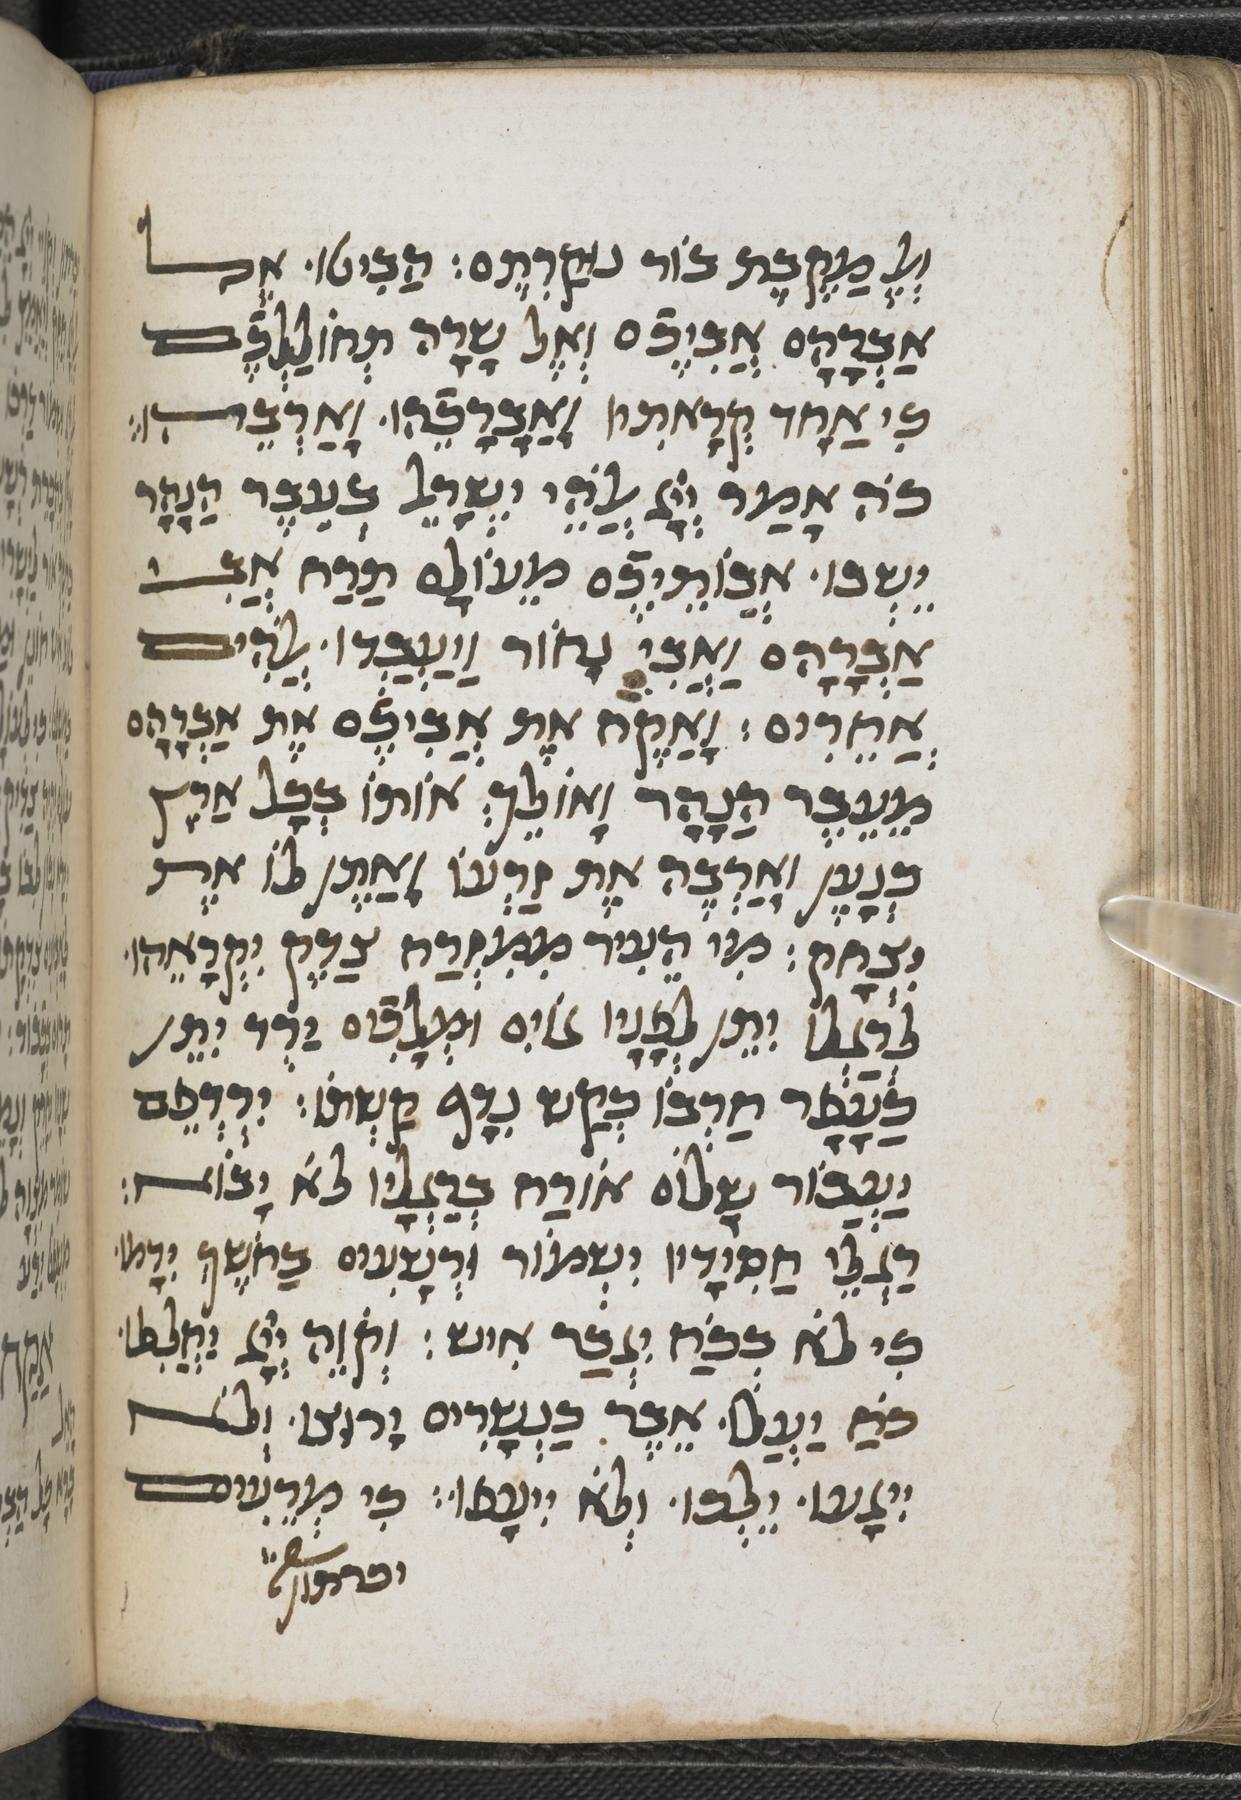 וְעֶל מַקֶבֶת בוֹר נוּקַרְתֶם: הַבִיטוּ· אֶל
אַבְרָהָם אֲבִיכֶם וְאֶל שָרָה תְחוֹלַלְכֶם
כִי אַחָד קְרָאתִיו וָאֲבָרָכֵהוּ· וָאַרְבֵיהוּ:
כֹה אָמַר יְיָ אֱלֹהֵי יִשְרָאֵל בְעֵבֶר הַנָהָר
יֵשְבוּ· אֲבוֹתֵיכֶם מֵעוֹלָם תַרַח אֲבִי
אַבְרָהָם וַאֲבִי נָחוֹר וַיַעַבְדוּ· אֱלֹהִים
אֲחֵרִים: וָאֶקַח אֶת אֲבִיכֶם אֶת אַבְרָהָם
מֵעֵבֶר הַנָהָר וָאוֹלֵךְ אוֹתוֹ בְכָל אֶרֶץ
כְנָעֶן וָאַרְבֶה אֶת זַרְעוֹ וָאַתֶן לוֹ אֶת
יִצְחָק: מִי הֵעִיר מִמִזְרַח צַדֶק יִקְרָאֵהוּ·
לְרַגְלוֹ יִתֵן לְפָנָיו גוֹיִם וּמְלָכִים יַרְד יִתֵן
כַעָפָר חַרְבוֹ כְקַש נִדָף קַשְתוֹ: יִרְדְפֵם
יַעֲבוֹר שָלוֹם אוֹרַח בְרַגְלָיו לֹא יָבוֹא:
רַגְלֵי חַסִידָיו יִשְמוֹר וּרְשָעִים בַחֹשֶךְ יִדָמוּ·
כִי לֹא בְכֹחַ יִגְבַר אִיש: וְקֹוֵה יְיָ יַחֲלִפוּ·
כֹחַ יַעֲלוּ· אֵבֶר כַנְשָרִים יָרוּצוּ· וְלֹא
יִיגָעוּ· יֵלְכוּ· וְלֹא יִיעָפוּ: כִי מְרֵעִים
יכרתון